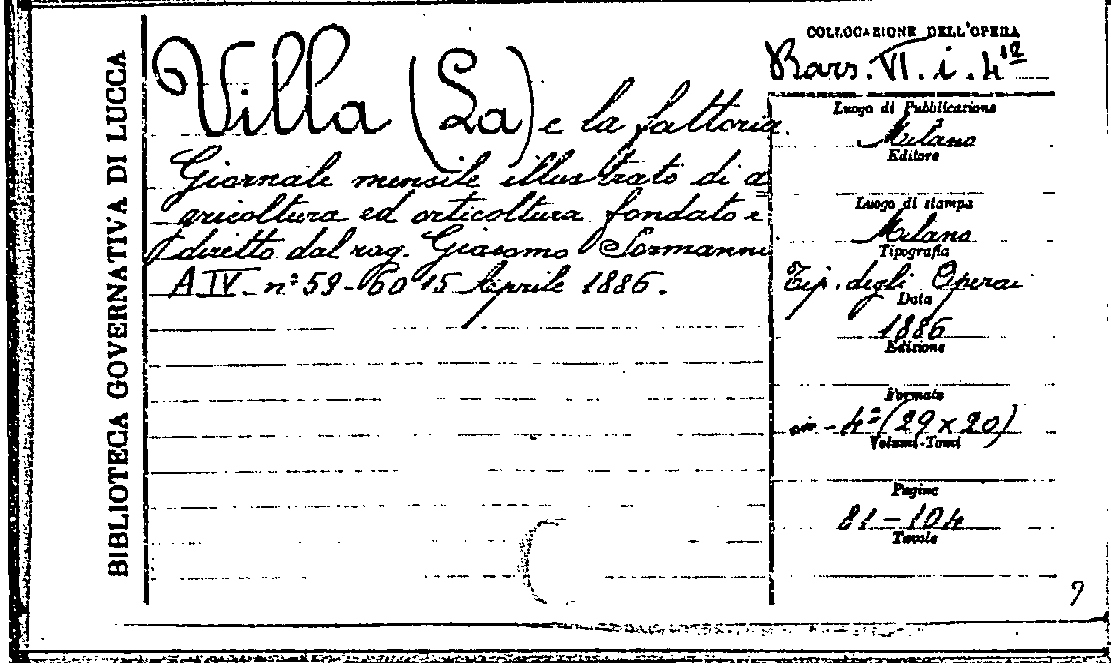 BIBLIOTECA GOVERNATIVA DI LUCCA
Villa (La) e la fattoria.
Giornale mensile illustrato di a
gricoltura ed orticoltura fondato e
diretto dal rag. Giacomo Sormanni
A IV - n° 59-60 15 Aprile 1886.
COLLOCAZIONE DELL'OPERA
VI. i. 4
Luogo di Pubblicazione
Milano
Editore
Luogo di stampa
Milano
Tipografia
Tip. degli Operai
Data
1886
Edizione
Formato
in-4° (29 x 20)
Volumi-Tomi
Pagine
81-104
Tavole